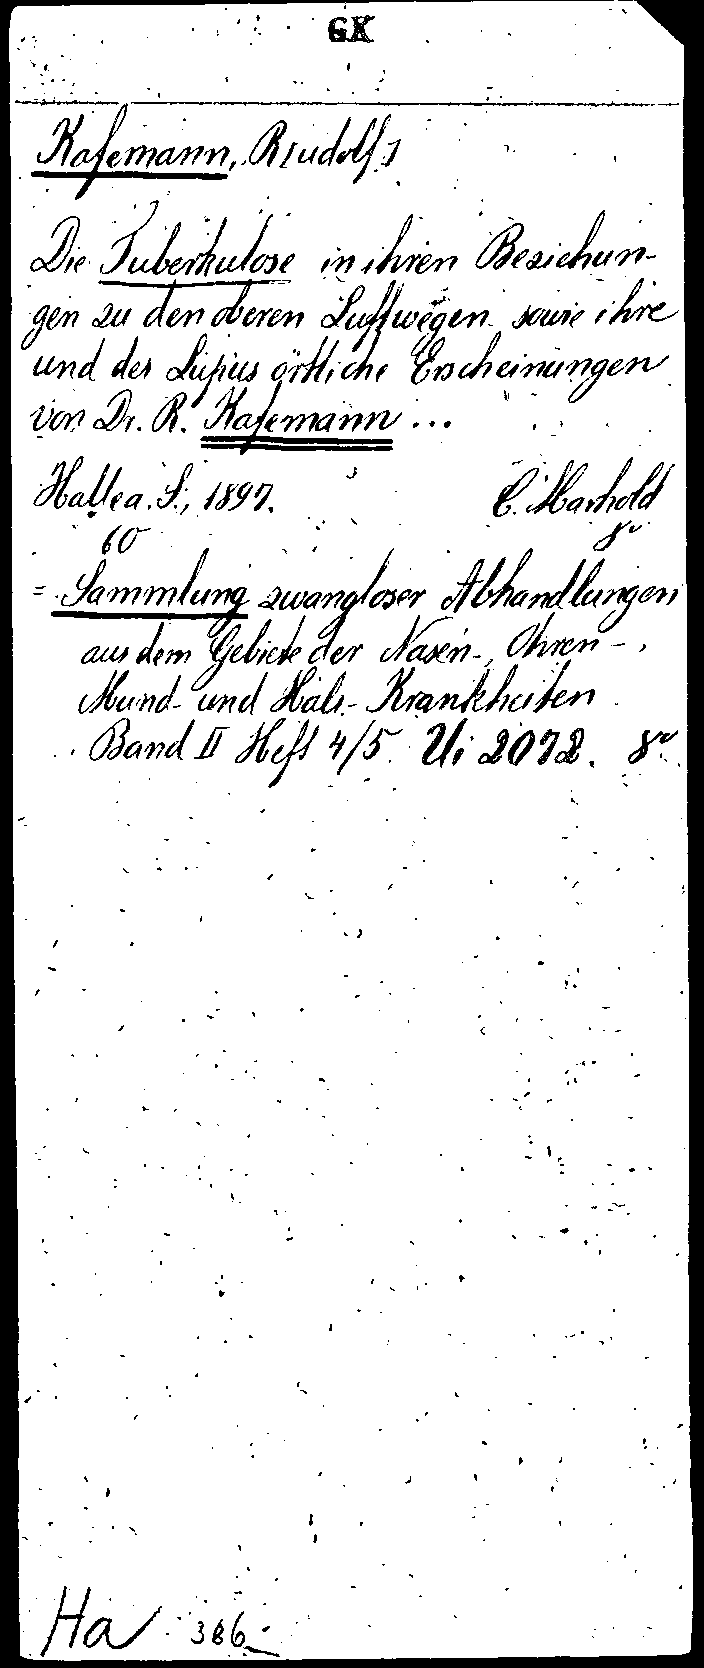 GK
Kafemann, R[udolf.]
Die Tuberkulose in ihren Beziehun-
gen zu den oberen Luftwegen sowie ihre
und des Lupus örtliche Erscheinungen
von Dr. R. Kafemann ...
Halle a. S., 1897. C. Marhold
60 8°
= Sammlung zwangloser Abhandlungen
aus dem Gebiete der Nasen-, Ohren-,
Mund- und Hals-Krankheiten
Band II Heft 4/5. Ui 2072. 8°
Ha 386